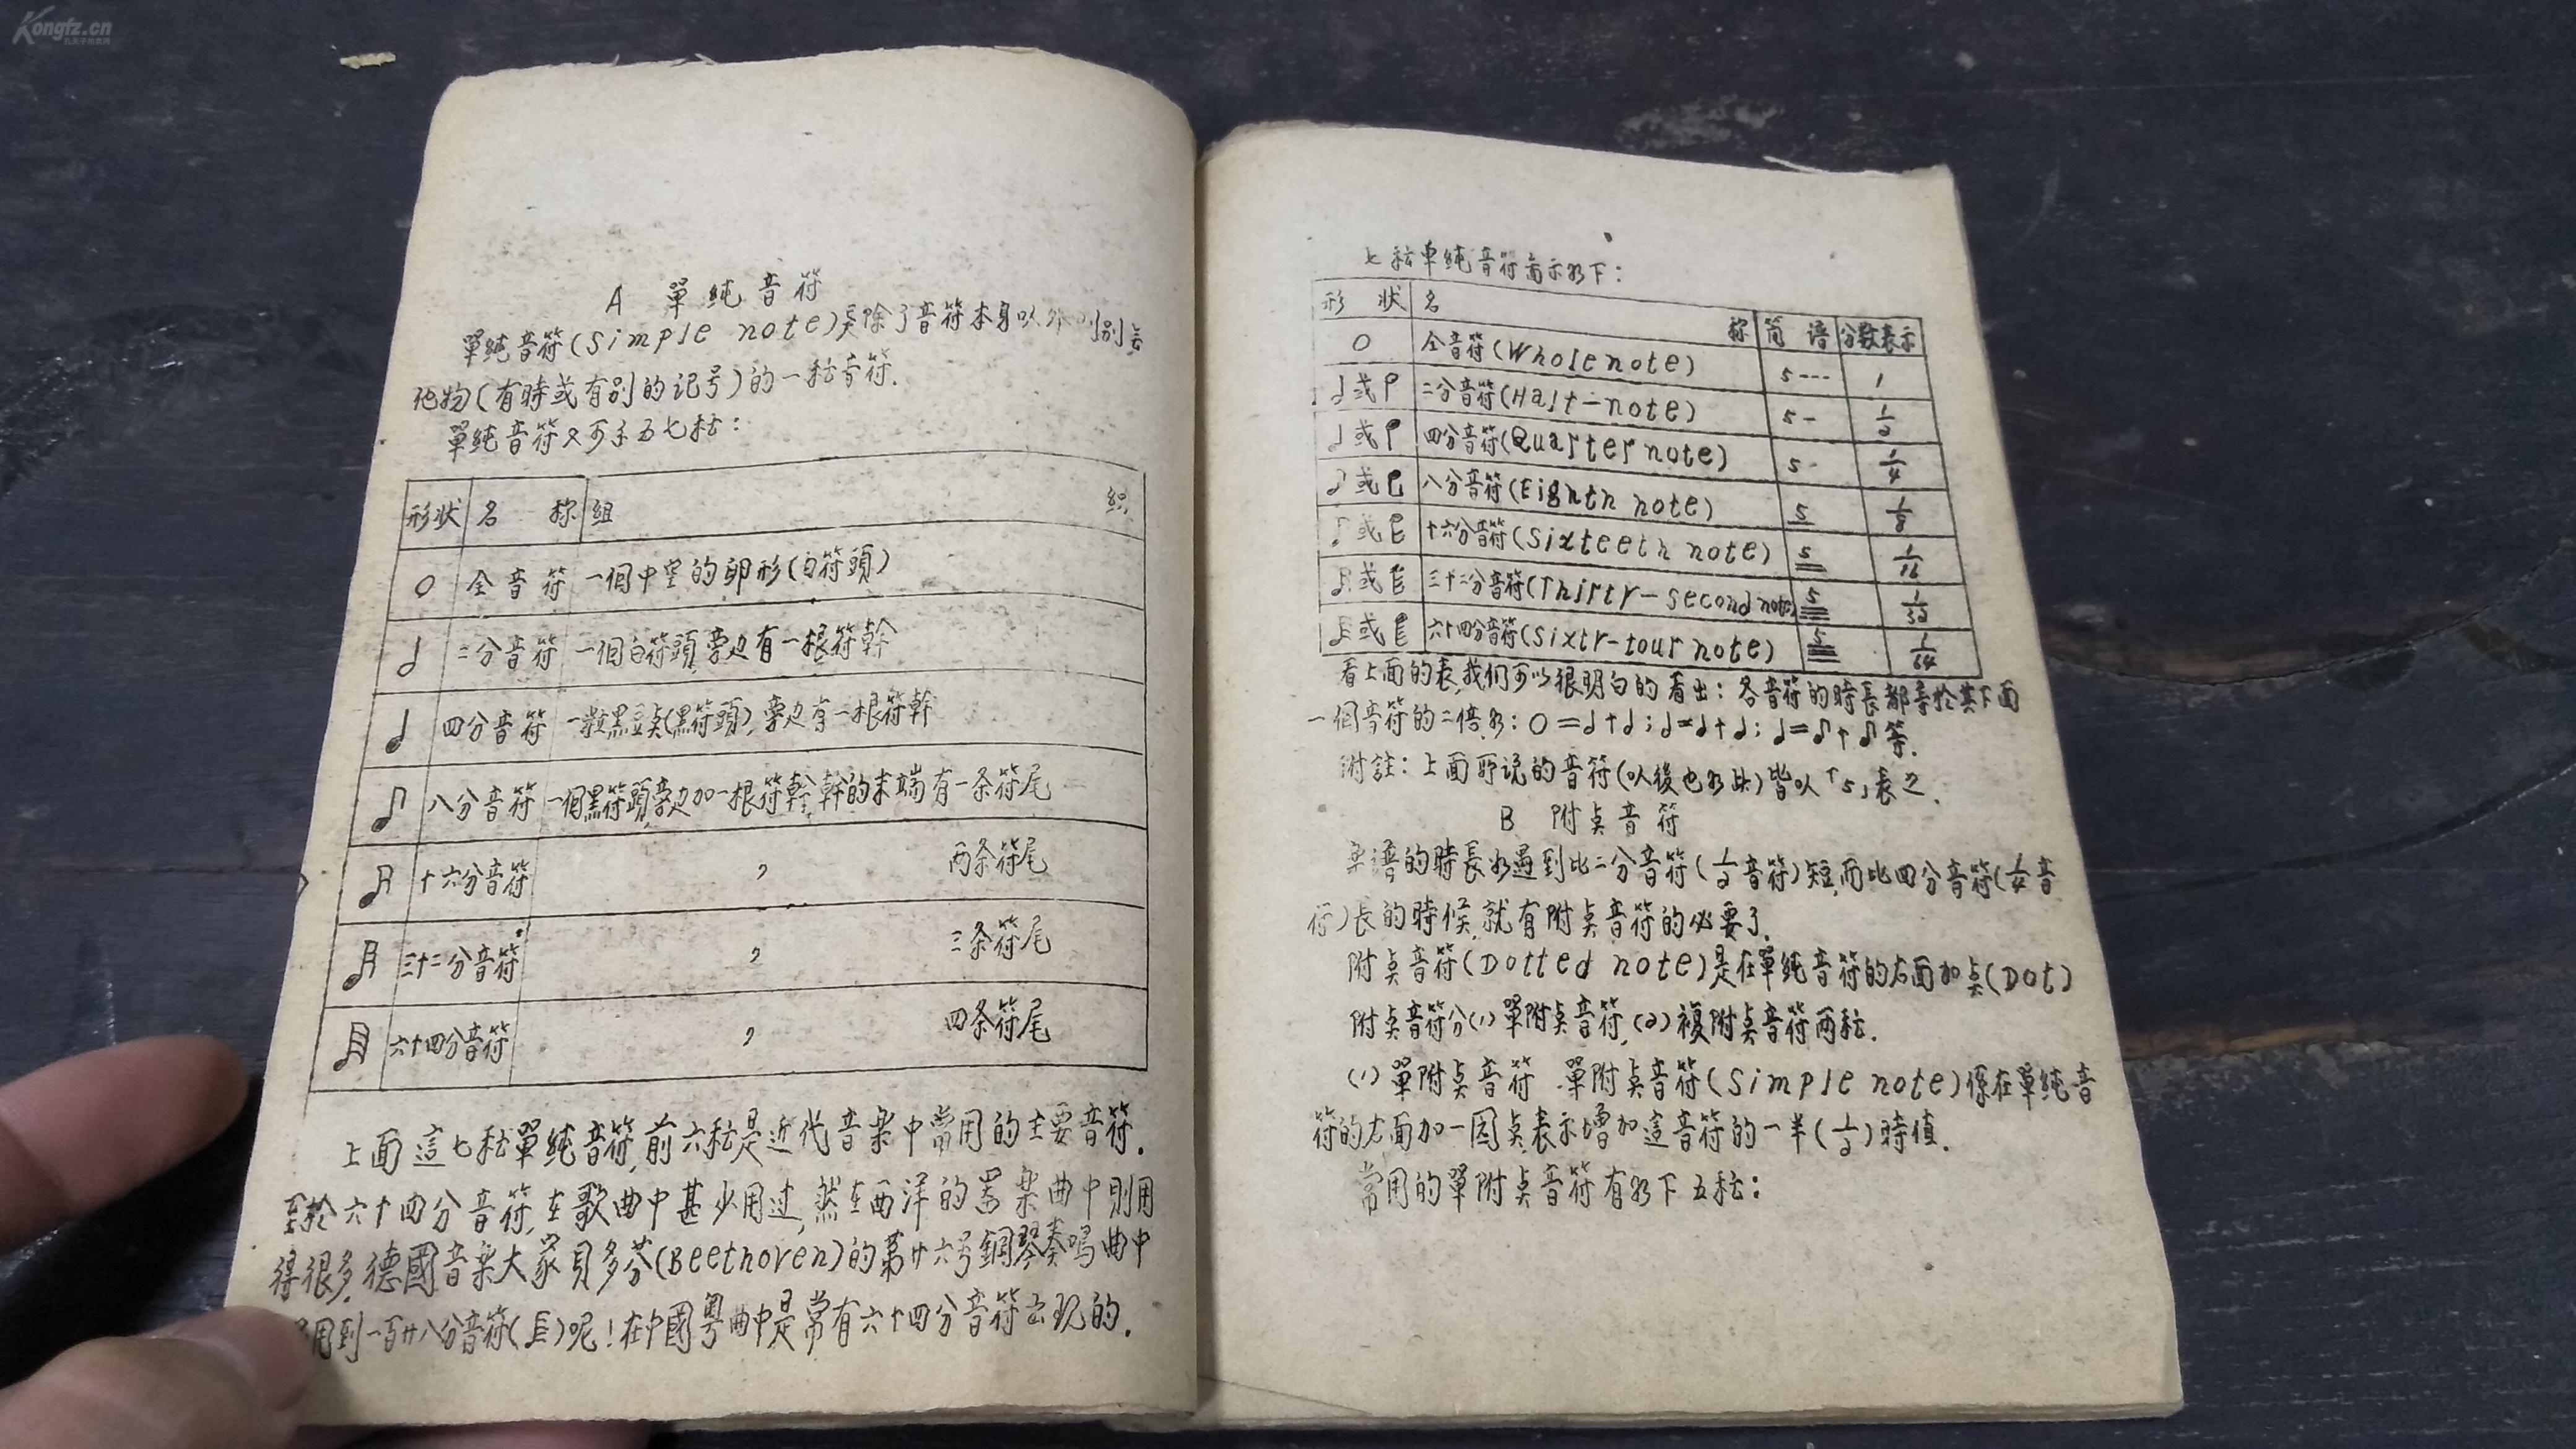 Kongfz.cn
A 單純音符
單純音符(Simple note)是除了音符本身以外別無
他物(有時或有别的记号)的一種音符.
單純音符又可分五七種:
形状 名称 組織
全音符 一個中空的卵形(白符頭)
二分音符 一個白符頭,旁边有一根符幹
四分音符 一粒黑豆点(黑符頭),旁边有一根符幹
八分音符 一個黑符頭旁边加一根符幹,幹的末端有一条符尾
十六分音符 〃 两条符尾
三十二分音符 〃 三条符尾
六十四分音符 〃 四条符尾
上面這七種單純音符,前六種是近代音楽中常用的主要音符.
至於六十四分音符,在歌曲中甚少用过,然在西洋的器楽曲中則用
得很多.德國音楽大家貝多芬(Beethoven)的第廿六号鋼琴奏鳴曲中
用到一百廿八分音符()呢!在中國粤曲中是常有六十四分音符出現的.
七種單純音符畧示如下:
形状 名称 简谱 分数表示
全音符(Whole note) 5--- 1
或 二分音符(Half-note) 5- 1/2
或 四分音符(Quarter note) 5 1/4
或 八分音符(Eighth note) 5 1/8
或 十六分音符(Sixteeth note) 5 1/16
或 三十二分音符(Thirty-second note) 5 1/32
或 六十四分音符(Sixty-four note) 5 1/64
看上面的表,我们可以很明白的看出:各音符的時長都等於其下面
一個音符的二倍如:○=𝅗𝅥+𝅗𝅥;𝅗𝅥=♩+♩;♩=♪+♪等.
附註:上面所说的音符(以後也如此)皆以「5」表之.
B 附点音符
楽譜的時長如遇到比二分音符(1/2音符)短,而比四分音符(1/4音
符)長的時候,就有附点音符的必要了.
附点音符(Dotted note)是在單純音符的右面加点(Dot)
附点音符分(1)單附点音符,(2)複附点音符两種.
(1)單附点音符 單附点音符(Simple note)係在單純音
符的右面加一圆点,表示增加這音符的一半(1/2)時值.
常用的單附点音符有如下五種: